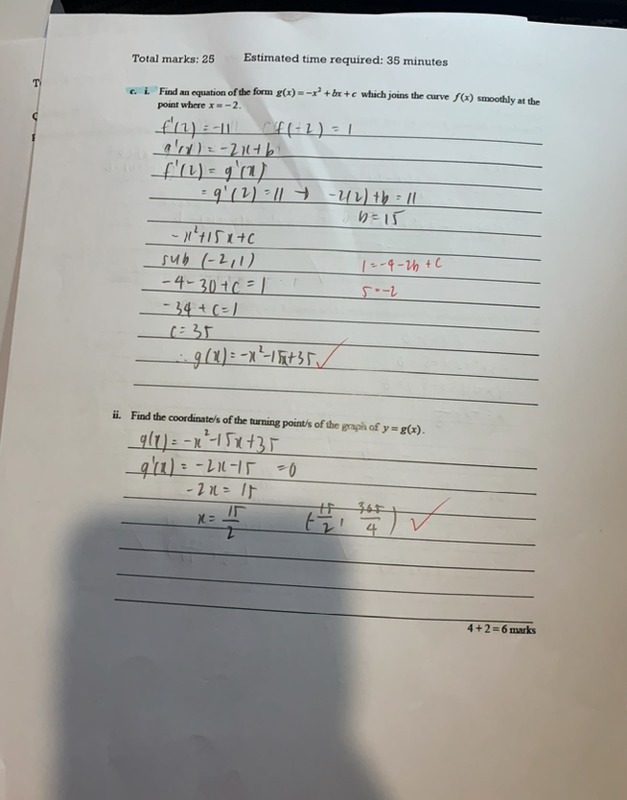 Total marks: 25 Estimated time required: 35 minutes
c. i. Find an equation of the form g(x) = -x² + bx + c which joins the curve f(x) smoothly at the
point where x = -2.
f'(2) = -11 f(-2) = 1
g'(x) = -2x+b
f'(2) = g'(x)
= g'(2) = 11 → -2(2)+b = 11
b = 15
-x²+15x+c
sub (-2,1) 1 = -4-2b+c
-4-30+c = 1 5 = -2
-34+c=1
c = 35
∴ g(x) = -x²-15x+35 ✓
ii. Find the coordinate/s of the turning point/s of the graph of y = g(x).
g(x) = -x²-15x+35
g'(x) = -2x-15 = 0
-2x = 15
x = 15/2 (-15/2, 365/4) ✓
4 + 2 = 6 marks